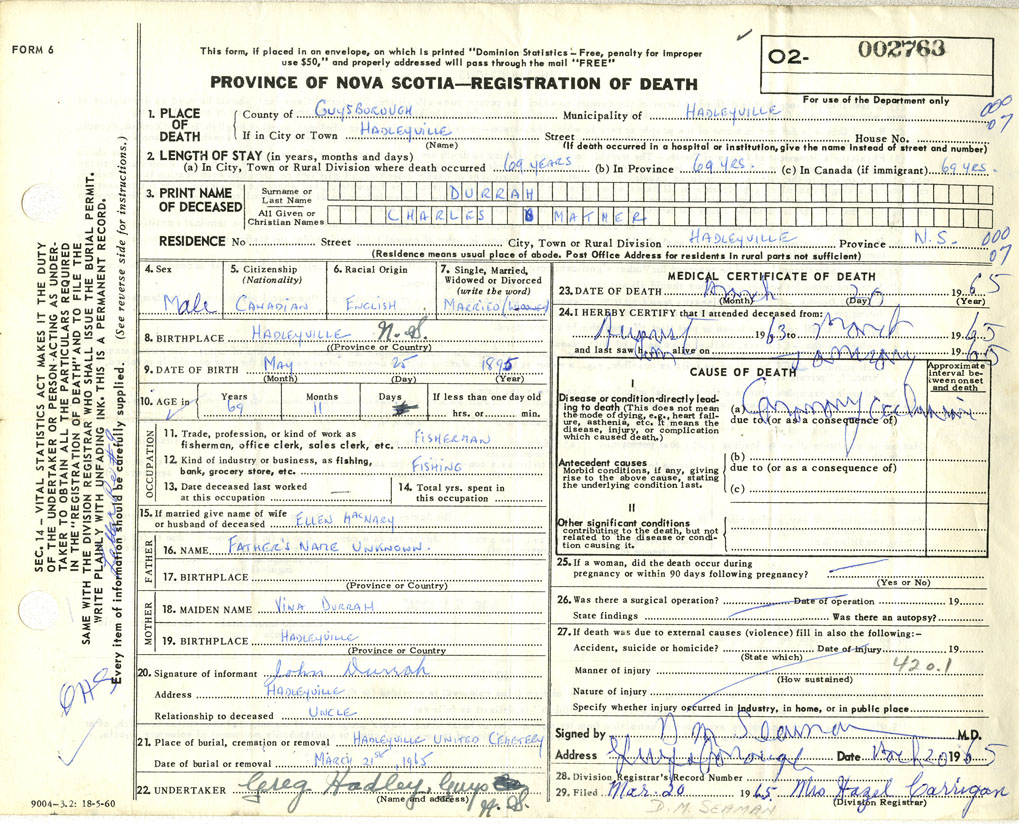 FORM 6
This form, if placed in an envelope, on which is printed "Dominion Statistics – Free, penalty for improper
use $50," and properly addressed will pass through the mail "FREE"
PROVINCE OF NOVA SCOTIA—REGISTRATION OF DEATH
O2- 002763
For use of the Department only
1. PLACE OF DEATH
County of GUYSBOROUGH Municipality of HADLEYVILLE 000 07
If in City or Town HADLEYVILLE Street House No.
(Name) (If death occurred in a hospital or institution, give the name instead of street and number)
2. LENGTH OF STAY (in years, months and days)
(a) In City, Town or Rural Division where death occurred 69 YEARS (b) In Province 69 YRS. (c) In Canada (if immigrant) 69 YRS.
3. PRINT NAME OF DECEASED
Surname or Last Name DURRAH
All Given or Christian Names CHARLES MATHER
RESIDENCE No Street City, Town or Rural Division HADLEYVILLE Province N.S. 000 07
(Residence means usual place of abode. Post Office Address for residents in rural parts not sufficient)
4. Sex
Male
5. Citizenship
(Nationality)
CANADIAN
6. Racial Origin
ENGLISH
7. Single, Married,
Widowed or Divorced
(write the word)
MARRIED
8. BIRTHPLACE HADLEYVILLE N.S.
(Province or Country)
9. DATE OF BIRTH MAY 25 1895
(Month) (Day) (Year)
10. AGE in
Years 69
Months 11
Days
If less than one day old
hrs. or min.
OCCUPATION
11. Trade, profession, or kind of work as
fisherman, office clerk, sales clerk, etc. FISHERMAN
12. Kind of industry or business, as fishing,
bank, grocery store, etc. FISHING
13. Date deceased last worked
at this occupation —
14. Total yrs. spent in
this occupation
15. If married give name of wife
or husband of deceased ELLEN MACNARY
FATHER
16. NAME FATHER'S NAME UNKNOWN.
17. BIRTHPLACE
(Province or Country)
MOTHER
18. MAIDEN NAME VINA DURRAH
19. BIRTHPLACE HADLEYVILLE
(Province or Country
20. Signature of informant John Durrah
Address HADLEYVILLE
Relationship to deceased UNCLE
21. Place of burial, cremation or removal HADLEYVILLE UNITED CEMETERY
Date of burial or removal MARCH 21ST, 1965
22. UNDERTAKER Greg Hadley, Guys
(Name and address) N.S.
MEDICAL CERTIFICATE OF DEATH
23. DATE OF DEATH March 1965
(Month) (Day) (Year)
24. I HEREBY CERTIFY that I attended deceased from:
August 1963 to March 1965
and last saw him alive on January 1965
CAUSE OF DEATH
Approximate
interval be-
tween onset
and death
I
Disease or condition directly lead-
ing to death (This does not mean
the mode of dying, e.g., heart fail-
ure, asthenia, etc. It means the
disease, injury, or complication
which caused death.)
(a) Coronary Occlusion
due to (or as a consequence of)
Antecedent causes
Morbid conditions, if any, giving
rise to the above cause, stating
the underlying condition last.
(b)
due to (or as a consequence of)
(c)
II
Other significant conditions
contributing to the death, but not
related to the disease or condi-
tion causing it.
25. If a woman, did the death occur during
pregnancy or within 90 days following pregnancy?
(Yes or No)
26. Was there a surgical operation? Date of operation 19
State findings Was there an autopsy?
27. If death was due to external causes (violence) fill in also the following:–
Accident, suicide or homicide? Date of injury 19
(State which) 420.1
Manner of injury
(How sustained)
Nature of injury
Specify whether injury occurred in industry, in home, or in public place
Signed by D M Seaman M.D.
Address Guysborough Date March 20 1965
28. Division Registrar's Record Number
29. Filed Mar. 20 1965 Mrs Hazel Carrigan
(Division Registrar)
D. M. SEAMAN
9004-3.2: 18-5-60
SEC. 14 – VITAL STATISTICS ACT MAKES IT THE DUTY
OF THE UNDERTAKER OR PERSON ACTING AS UNDER-
TAKER TO OBTAIN ALL THE PARTICULARS REQUIRED
IN THE "REGISTRATION OF DEATH" AND TO FILE THE
SAME WITH THE DIVISION REGISTRAR WHO SHALL ISSUE THE BURIAL PERMIT.
WRITE PLAINLY WITH UNFADING INK. THIS IS A PERMANENT RECORD.
Every item of information should be carefully supplied. (See reverse side for instructions.)